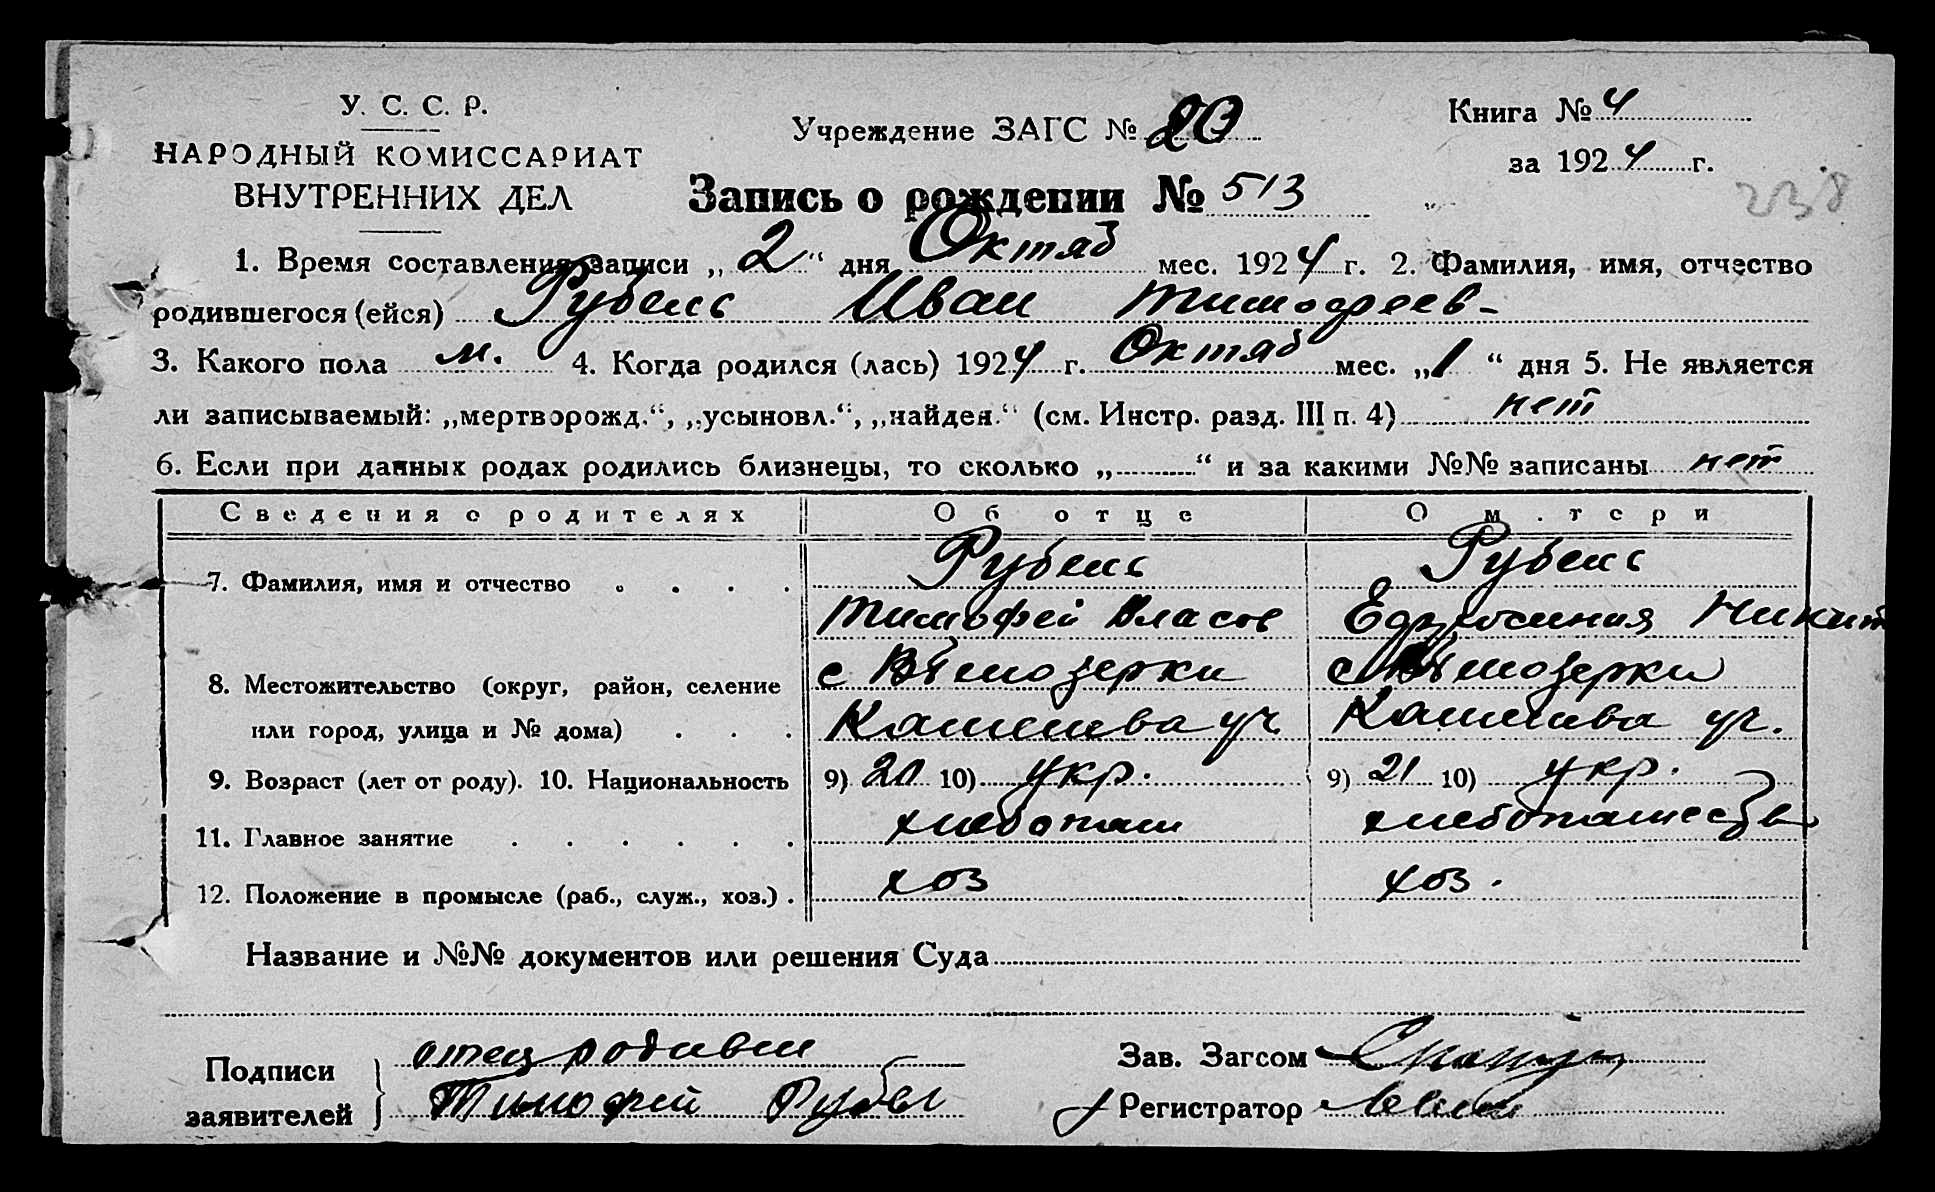 У. С. С. Р.
НАРОДНЫЙ КОМИССАРИАТ
ВНУТРЕННИХ ДЕЛ
Учреждение ЗАГС № 20
Книга № 4
за 1924 г.
Запись о рождении № 513
238
1. Время составления записи „2“ дня Октяб мес. 1924 г. 2. Фамилия, имя, отчество
родившегося (ейся) Рубель Иван Тимофеев-
3. Какого пола м. 4. Когда родился (лась) 1924 г. Октяб мес. „1“ дня 5. Не является
ли записываемый: „мертворожд.“, „усыновл.“, „найден.“ (см. Инстр. разд. III п. 4) нет
6. Если при данных родах родились близнецы, то сколько „ “ и за какими №№ записаны нет
Сведения о родителях Об отце О м.тери
7. Фамилия, имя и отчество . . . . Рубель Рубель
Тимофей Власов Ефросиния Никит
8. Местожительство (округ, район, селение с Белозерки с Белозерки
или город, улица и № дома) . . . уч. уч.
9. Возраст (лет от роду). 10. Национальность 9) 20 10) укр. 9) 21 10) укр.
11. Главное занятие . . . . . . хлебопаш
12. Положение в промысле (раб., служ., хоз.) . хоз хоз.
Название и №№ документов или решения Суда
Подписи заявителей } отец
Тимофей
Зав. Загсом
Регистратор